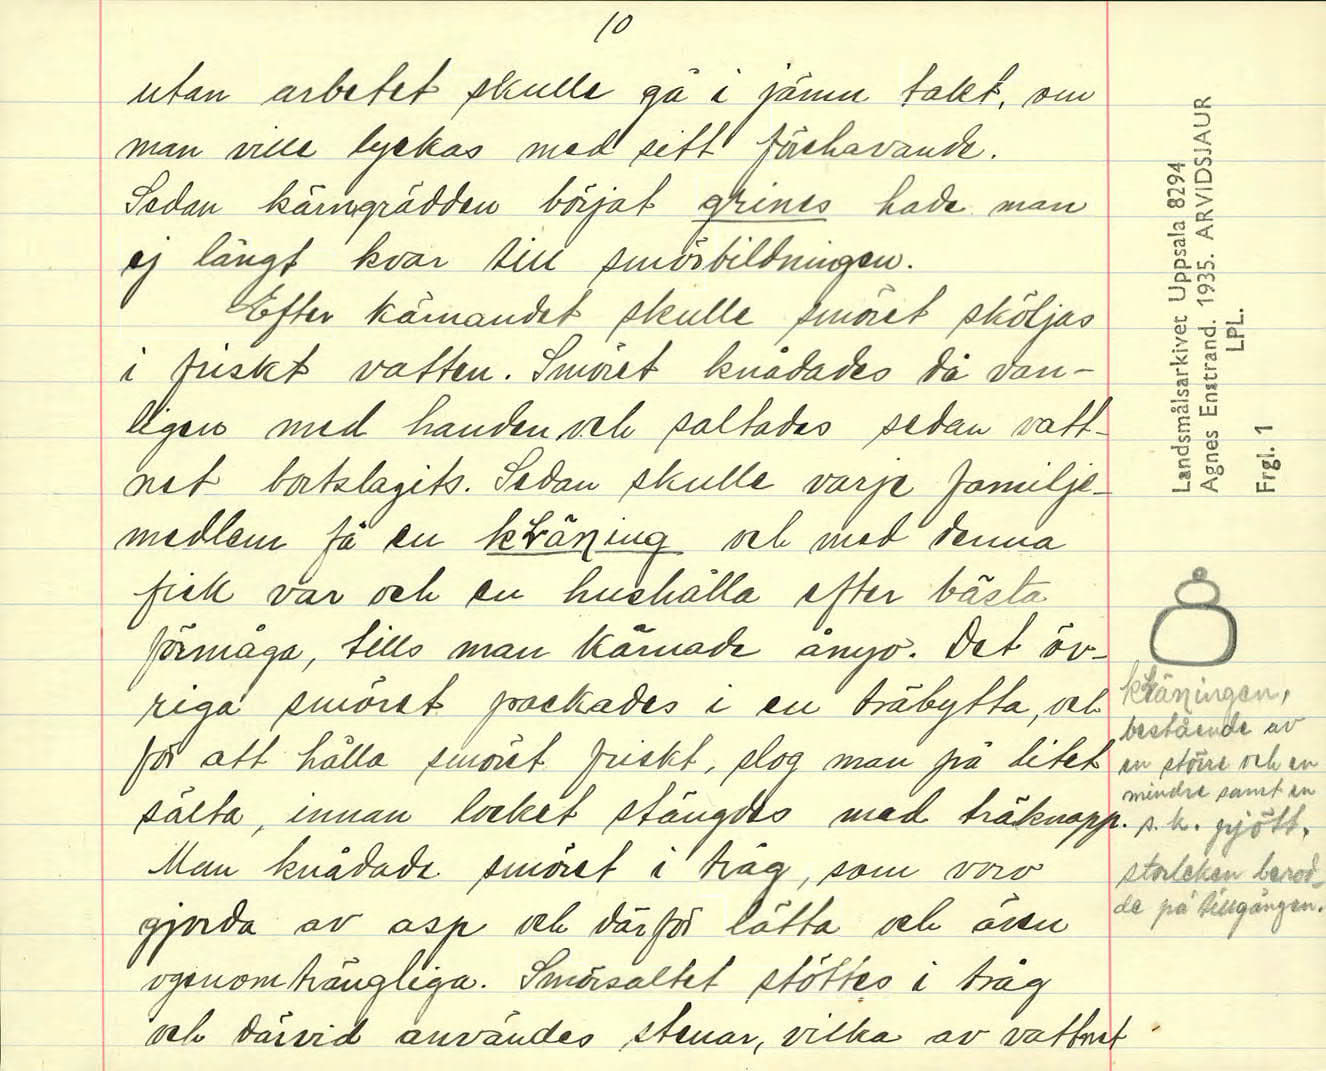 10
utan arbetet skulle gå i jämn takt, om
man ville lyckas med sitt förehavande.
Sedan kärngrädden börjat grines hade man
ej långt kvar till smörbildningen.
Efter kärnandet skulle smöret sköljas
i friskt vatten. Smöret knådades då van-
ligen med handen och saltades sedan vatt-
net bortslagits. Sedan skulle varje familje-
medlem få en
och med denna
fick var och en hushålla efter bästa
förmåga, tills man kärnade ånyo. Det öv-
riga smöret packades i en träbytta, och
för att hålla smöret friskt, slog man på litet
sälta, innan locket stängdes med träknapp.
Man knådade smöret i tråg, som voro
gjorda av asp och därför lätta och även
ogenomträngliga. Smörsaltet stöttes i tråg
och därvid användes stenar, vilka av vattnet
Landsmålsarkivet Uppsala 8294
Agnes Enstrand. 1935. ARVIDSJAUR
LPL.
Frgl. 1
bestående av
en större och en
mindre samt en
s.k. pjött.
storleken berod-
de på tillgången.